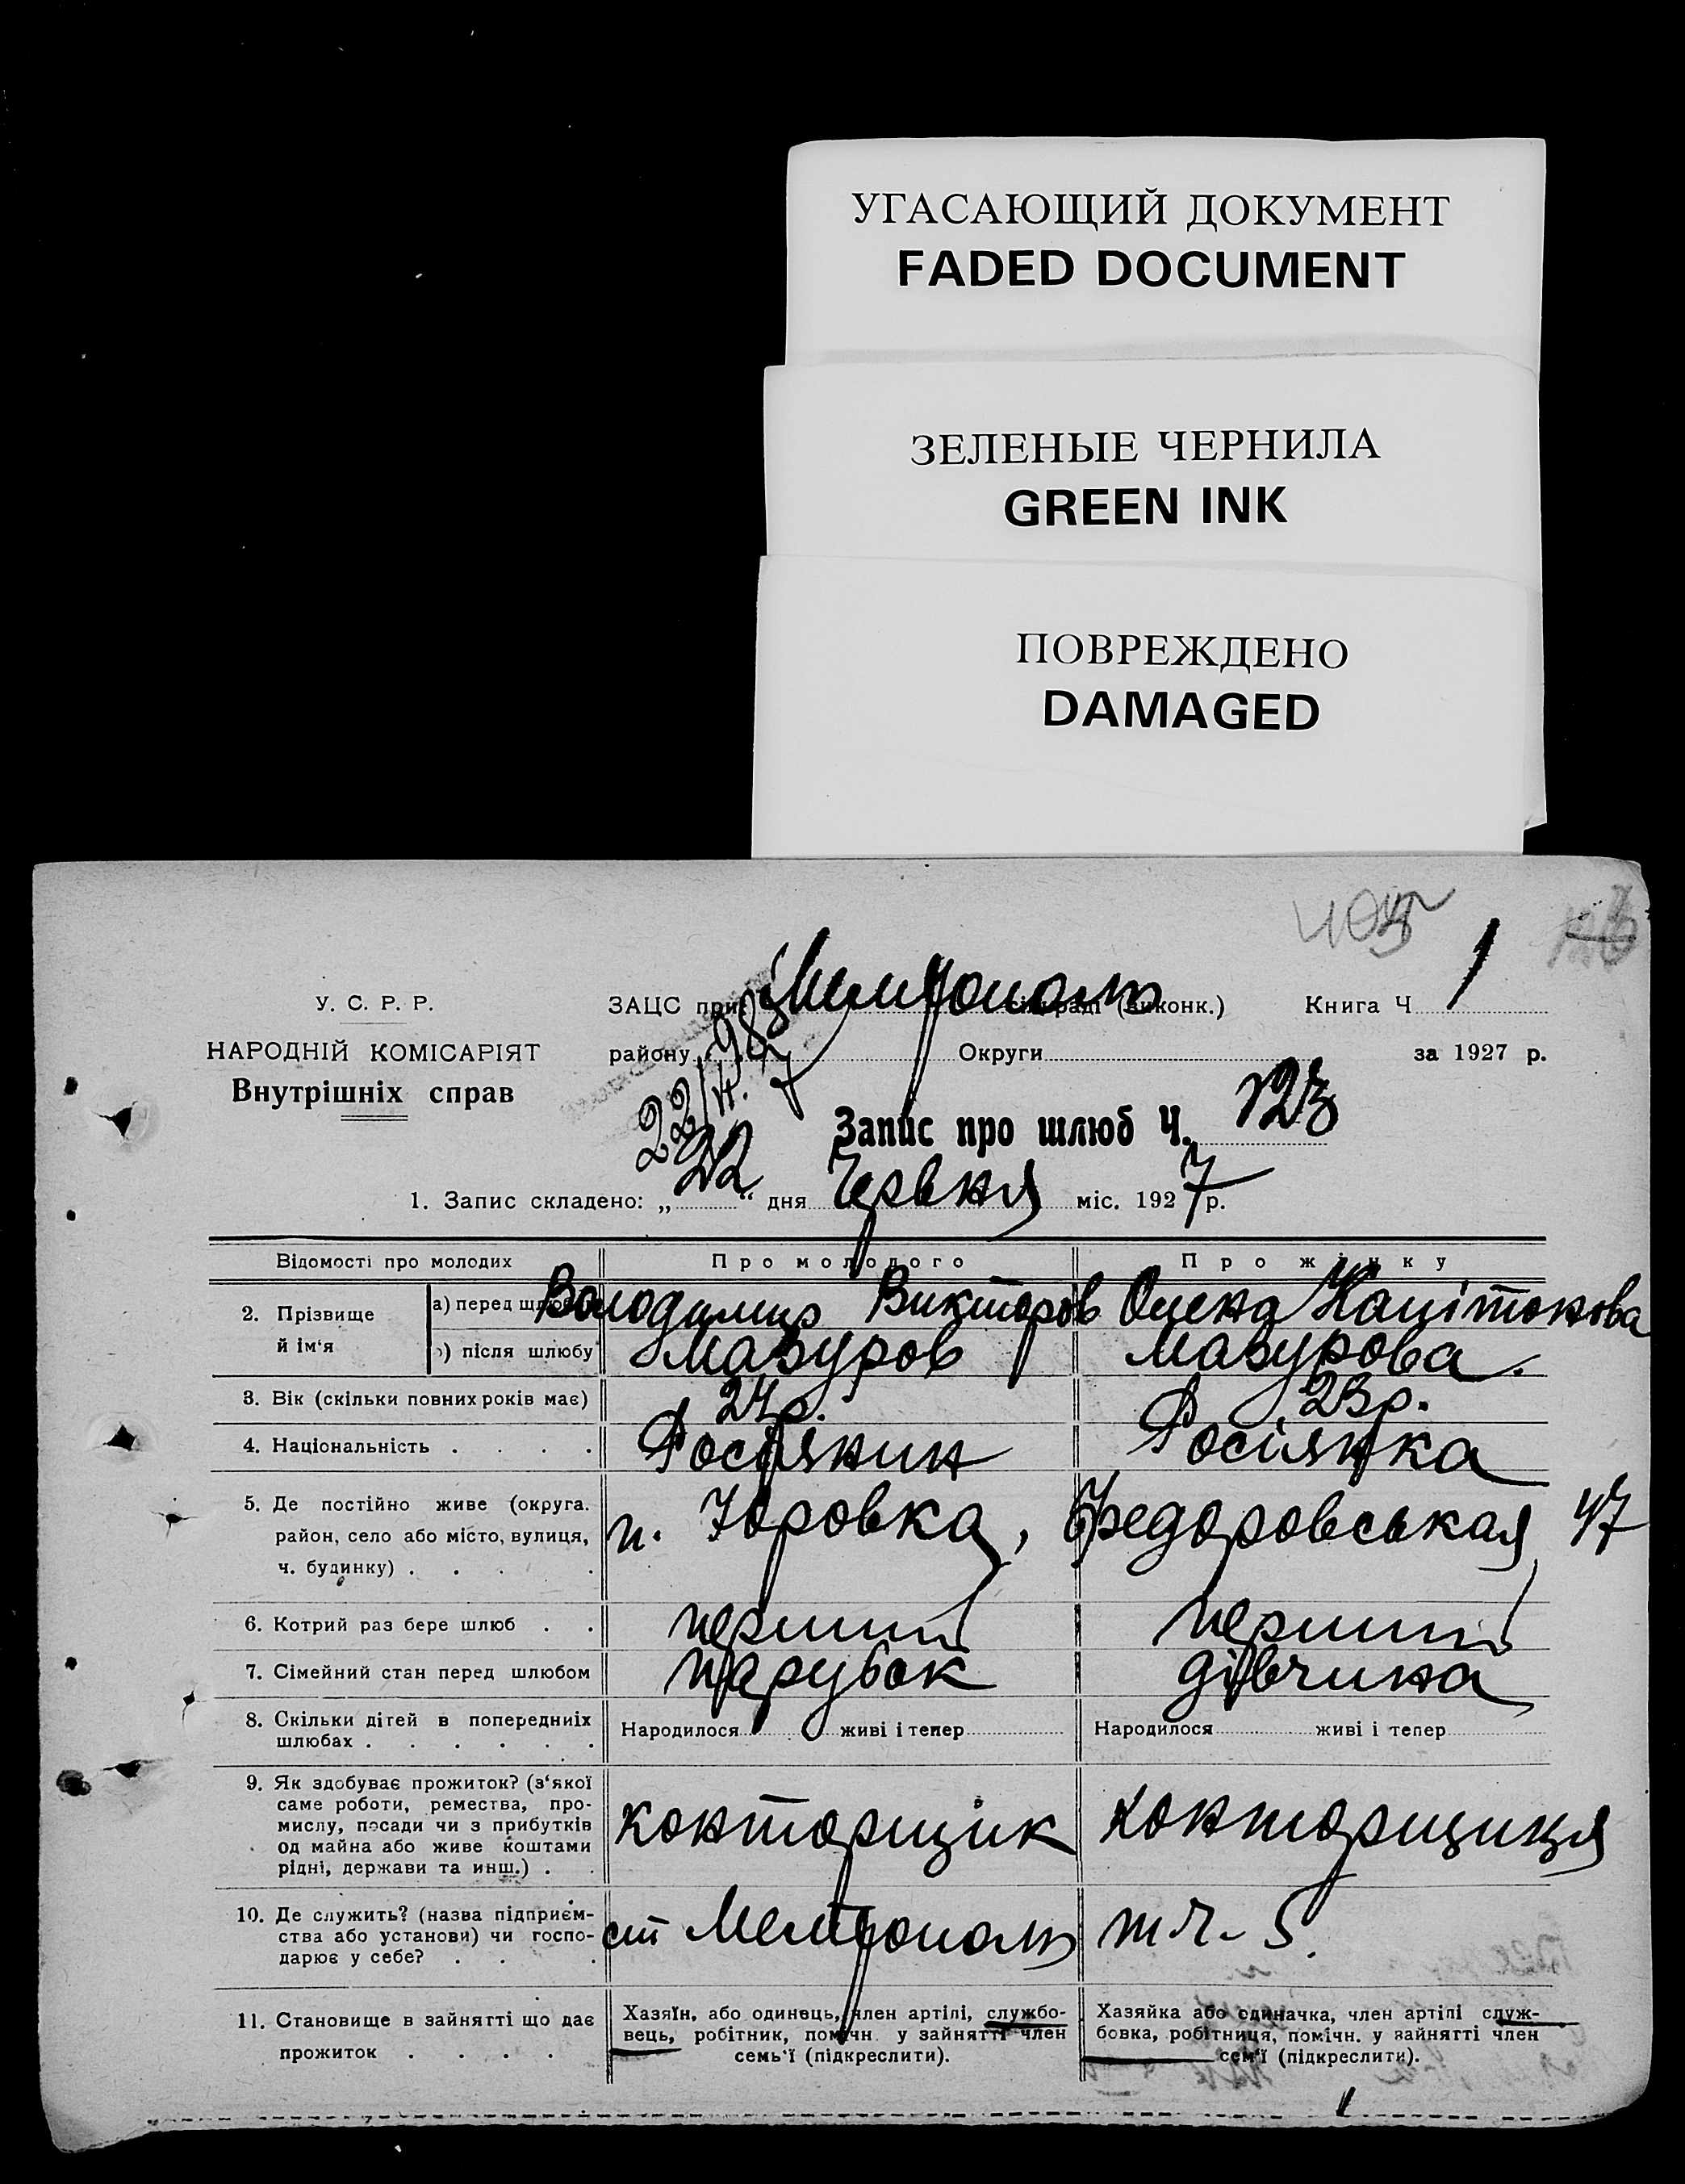 УГАСАЮЩИЙ ДОКУМЕНТ
FADED DOCUMENT
ЗЕЛЕНЫЕ ЧЕРНИЛА
GREEN INK
ПОВРЕЖДЕНО
DAMAGED
У. С. Р. Р.
НАРОДНІЙ КОМІСАРІЯТ
Внутрішніх справ
ЗАЦС при (виконк.) Книга Ч 1
району Округи за 1927 р.
Запис про шлюб Ч. 123
1. Запис складено: „22“ дня Червня міс. 1927 р.
Відомості про молодих Про молодого Про жінку
2. Прізвище й ім‘я
а) перед шлюбом Володимир Викторов Олена Капітонова
б) після шлюбу Мазуров Мазурова.
3. Вік (скільки повних років має) 24р. 23р.
4. Національність . . . . Росіянин Росіянка
5. Де постійно живе (округа.
район, село або місто, вулиця,
ч. будинку) . . . .
п. Юровка, Федоровськая 47
6. Котрий раз бере шлюб . . перший перший
7. Сімейний стан перед шлюбом парубок дівчина
8. Скільки дітей в попередниіх
шлюбах . . . . . .
Народилося живі і тепер Народилося живі і тепер
9. Як здобуває прожиток? (з‘якої
саме роботи, ремества, про-
мислу, посади чи з прибутків
од майна або живе коштами
рідні, держави та инш.) . .
конторщик конторщиця
10. Де служить? (назва підприєм-
ства або установи) чи госпо-
дарює у себе? . . .
ст
11. Становище в зайнятті що дає
прожиток . . . .
Хазяїн, або одинець, член артілі, службо-
вець, робітник, помічн. у зайнятті член
семь‘ї (підкреслити).
Хазяйка або одиначка, член артілі служ-
бовка, робітниця, помічн. у зайнятті член
сем‘ї (підкреслити).